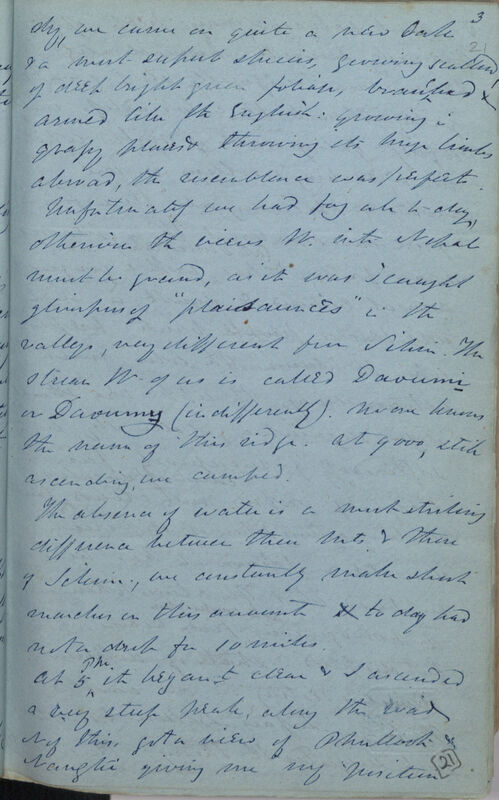 3
21
dry, we came on quite a new Oak
& a most superb species, growing scattered,
of deep bright green foliage, branched &
armed like the English: growing in
grassy places & throwing its huge limbs
abroad, the resemblance was perfect.
Unfortunately we had fog all to-day,
otherwise the views W. into Nepal
must be grand, as it was I caught
glimpses of "plaisaunces" in the
valleys, very different from Sikim. The
stream W of us is called Daoumi
or Daoumy (indifferently). no one knows
the name of this ridge. at 9000, still
ascending, we camped.
The absence of water is a most striking
difference between these mts & those
of Sikim, we constantly make short
marches on this account & to day had
not a drop for 10 miles.
at 5 PM it began to clear & I ascended
a very steep peak, along the road
N of this got a view of Phulloot &
Nanghi giving me my position
21